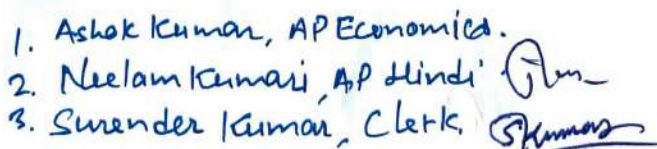 1. Ashok Kumar, AP Economics.
2. Neelam Kumari, AP Hindi
3. Surender Kumar, Clerk. SKumar